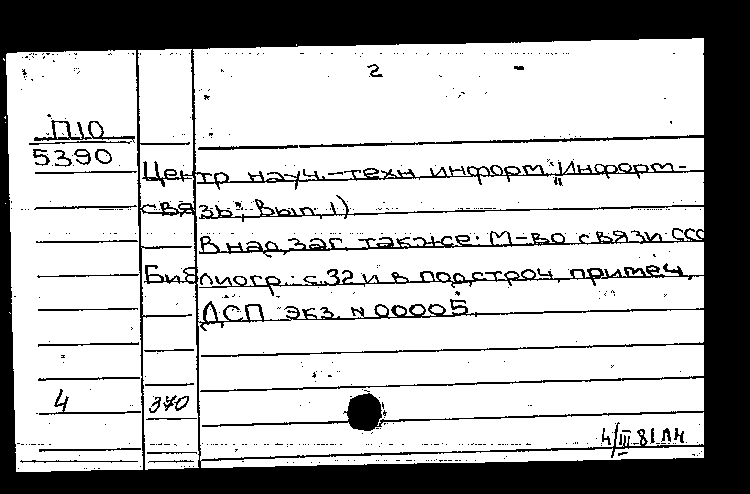 2
П10
5390
Центр науч.-техн. информ. "Информ-
связь"; Вып. 1)
В над заг. также: М-во связи ССС
Библиогр.: с. 32 и в подстроч. примеч.
ДСП Экз. N 00005.
4 370
4/III 81